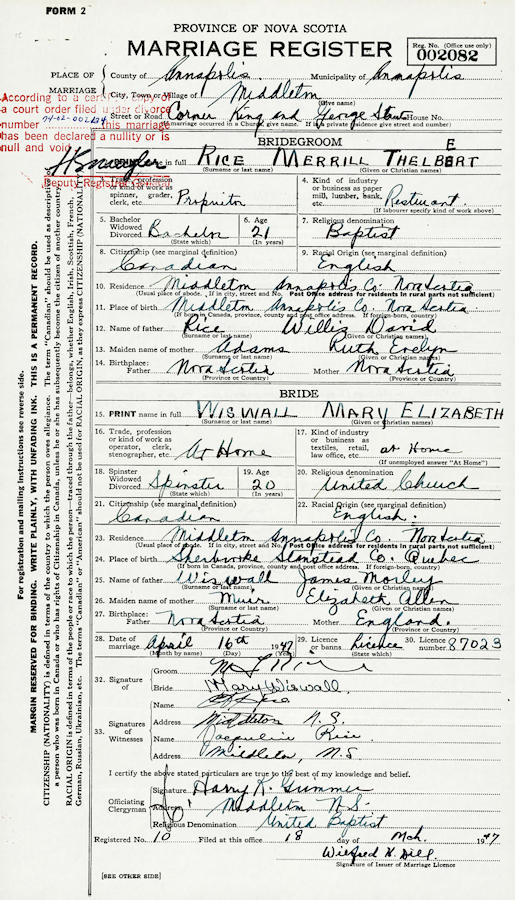 FORM 2
PROVINCE OF NOVA SCOTIA
MARRIAGE REGISTER
Reg. No. (Office use only)
002082
PLACE OF MARRIAGE
County of Annapolis Municipality of Annapolis
City, Town or Village of Middleton
(Give name)
Street or Road Corner King and George Sts House No.
(If marriage occurred in a Church, give name. If in a private residence give street and number)
According to a certified copy of
a court order filed under divorce
number 74-02-002124 this marriage
has been declared a nullity or is
null and void.
Deputy Registrar General
BRIDEGROOM
PRINT name in full RICE MERRILL THELBERT
(Surname or last name) (Given or Christian names)
3. Trade, profession or kind of work as spinner, grader, clerk, etc. Proprietor
4. Kind of industry or business as paper mill, lumber, bank, etc. Resturant.
(If labourer specify kind of work above)
5. Bachelor Widowed Divorced Bachelor
(State which)
6. Age 21
(In years)
7. Religious denomination
Baptist
8. Citizenship (see marginal definition)
Canadian
9. Racial Origin (see marginal definition)
English
10. Residence Middleton Annapolis Co. Nova Scotia
(Usual place of abode. If in city, street and No. Post Office address for residents in rural parts not sufficient)
11. Place of birth Middleton Annapolis Co. Nova Scotia.
(If born in Canada, province, county and post office address. If foreign-born, country)
12. Name of father Rice Willis David
(Surname or last name) (Given or Christian names)
13. Maiden name of mother Adams Ruth Evelyn
(Surname or last name) (Given or Christian names)
14. Birthplace: Father Nova Scotia Mother Nova Scotia
(Province or Country) (Province or Country)
BRIDE
15. PRINT name in full WISWALL MARY ELIZABETH
(Surname or last name) (Given or Christian names)
16. Trade, profession or kind of work as operator, clerk, stenographer, etc. At Home
17. Kind of industry or business as textiles, retail, law office, etc. at Home
(If unemployed answer "At Home")
18. Spinster Widowed Divorced Spinster
(State which)
19. Age 20
(In years)
20. Religious denomination
United Church
21. Citizenship (see marginal definition)
Canadian
22. Racial Origin (see marginal definition)
English.
23. Residence Middleton Annapolis Co. Nova Scotia
(Usual place of abode. If in city, street and No. Post Office address for residents in rural parts not sufficient)
24. Place of birth Sherbrooke Stanstead Co. Quebec
(If born in Canada, province, county and post office address. If foreign-born, country)
25. Name of father Wiswall James Morley
(Surname or last name) (Given or Christian names)
26. Maiden name of mother Muir Elizabeth Allen
(Surname or last name) (Given or Christian names)
27. Birthplace: Father Nova Scotia Mother England.
(Province or Country) (Province or Country)
28. Date of marriage April 16th 1947
(Month by name) (Day) (Year)
29. Licence or banns Licence
(State which)
30. Licence number 87023
32. Signature of
Groom
Bride Mary Wiswall
33. Signatures of Witnesses
Name
Address Middleton N.S.
Name Jacqueline Rice
Address Middleton, N.S
I certify the above stated particulars are true to the best of my knowledge and belief.
Officiating Clergyman
Signature Harry K. Gummer
Address Middleton N.S.
Religious Denomination United Baptist
Registered No. 10 Filed at this office 18 day of Mch. 1947
Wilfred H. Dill.
Signature of Issuer of Marriage Licence
[SEE OTHER SIDE]
For registration and mailing instructions see reverse side.
MARGIN RESERVED FOR BINDING. WRITE PLAINLY, WITH UNFADING INK. THIS IS A PERMANENT RECORD.
CITIZENSHIP (NATIONALITY) is defined in terms of the country to which the person owes allegiance. The term "Canadian" should be used as descriptive
a person who was born in Canada or who has rights of Citizenship in Canada, unless he or she has subsequently become the citizen of another country.
RACIAL ORIGIN is defined in terms of the people or race to which the person—traced through the father—belongs, whether English, Irish, Scottish, French,
German, Russian, Ukrainian, etc. The terms "Canadian" or "American" should not be used for RACIAL ORIGIN, as they express CITIZENSHIP (NATIONALITY)